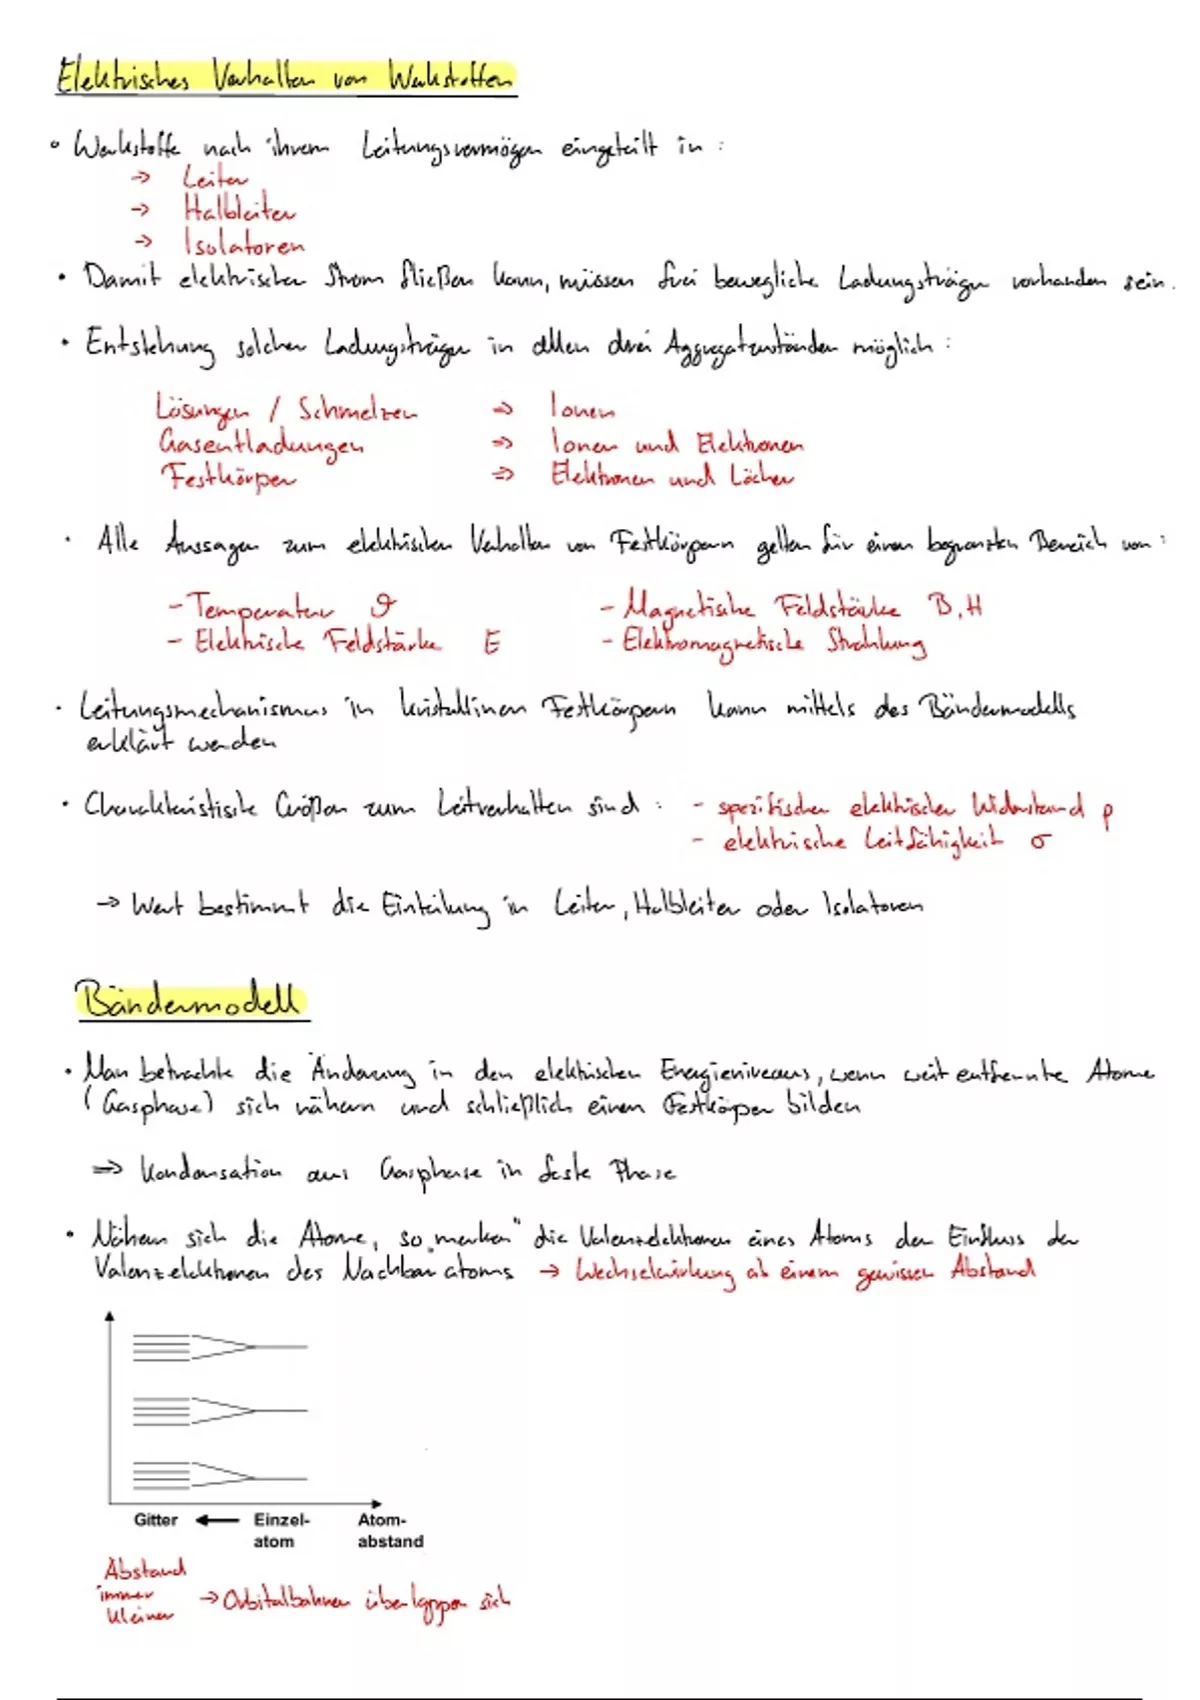 Elektrisches Verhalten von Werkstoffen
• Werkstoffe nach ihrem Leitungsvermögen eingeteilt in :
→ Leiter
→ Halbleiter
→ Isolatoren
• Damit elektrischer Strom fließen kann, müssen frei bewegliche Ladungsträger vorhanden sein.
• Entstehung solcher Ladungsträger in allen drei Aggregatzuständen möglich :
Lösungen / Schmelzen ⇒ Ionen
Gasentladungen ⇒ Ionen und Elektronen
Festkörper ⇒ Elektronen und Löcher
• Alle Aussagen zum elektrischen Verhalten von Festkörpern gelten für einen begrenzten Bereich von :
- Temperatur ϑ - Magnetische Feldstärke B, H
- Elektrische Feldstärke E - Elektromagnetische Strahlung
• Leitungsmechanismus in kristallinen Festkörpern kann mittels des Bändermodells
erklärt werden
• Charakteristische Größen zum Leitverhalten sind : - spezifischer elektrischer Widerstand ρ
- elektrische Leitfähigkeit σ
→ Wert bestimmt die Einteilung in Leiter, Halbleiter oder Isolatoren
Bändermodell
• Man betrachte die Änderung in den elektrischen Energieniveaus, wenn weit entfernte Atome
(Gasphase) sich nähern und schließlich einen Festkörper bilden
⇒ Kondensation aus Gasphase in feste Phase
• Nähern sich die Atome, so „merken" die Valenzelektronen eines Atoms den Einfluss der
Valenzelektronen des Nachbaratoms → Wechselwirkung ab einem gewissen Abstand
Gitter ← Einzel- Atom-
atom abstand
Abstand
immer → Orbitalbahnen überlappen sich
kleiner